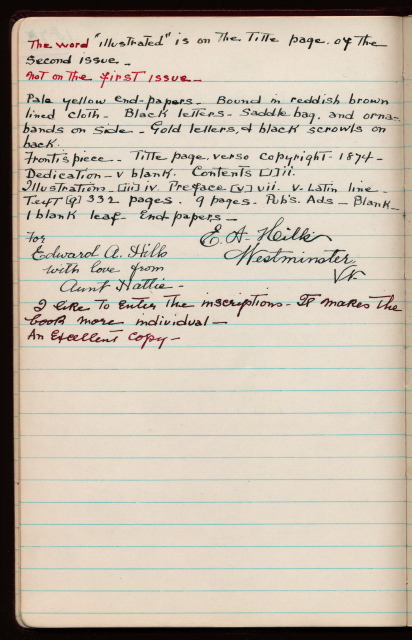 The word "illustrated" is on The Title page of the
Second issue -
not on the first issue -
Pale yellow end-papers - Bound in reddish brown
lined cloth - Black letters - Saddle bag, and orna-
bands on side - Gold letters, & black scrowls on
back.
Frontispiece - Title page, verso copyright - 1874 -
Dedication - v blank. Contents [i] ii.
Illustrations - [iii] iv Preface [v] vii. v. Latin line -
Text [9] 332 pages. 9 pages - Pub's. Ads - Blank -
1 blank leaf - End papers -
For
Edward A. Hills
with love from
Aunt Hattie -
E. A. Hills
Westminster
Vt.
I like To Enter The inscriptions - It makes The
book more individual -
An Excellent Copy -